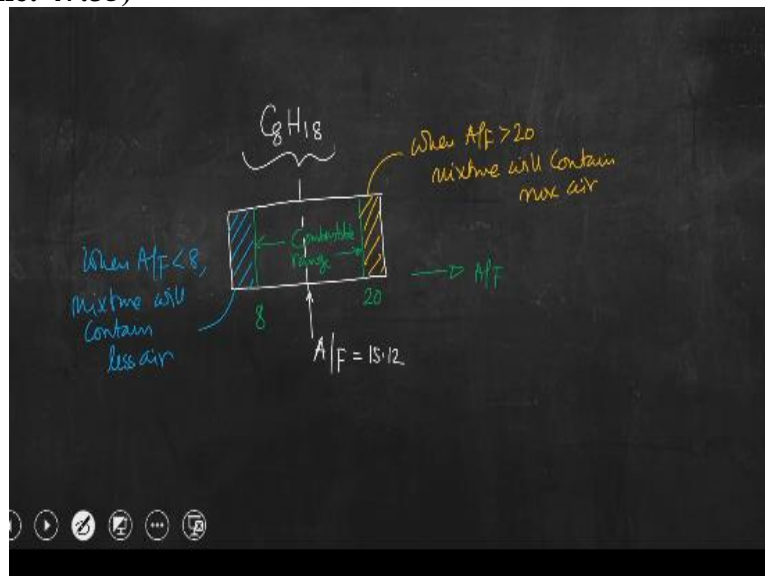 C8H18
when A/F > 20
mixture will contain
max air
Combustible
range
When A/F < 8,
mixture will
contain
less air
8
20
A/F
A/F = 15.12